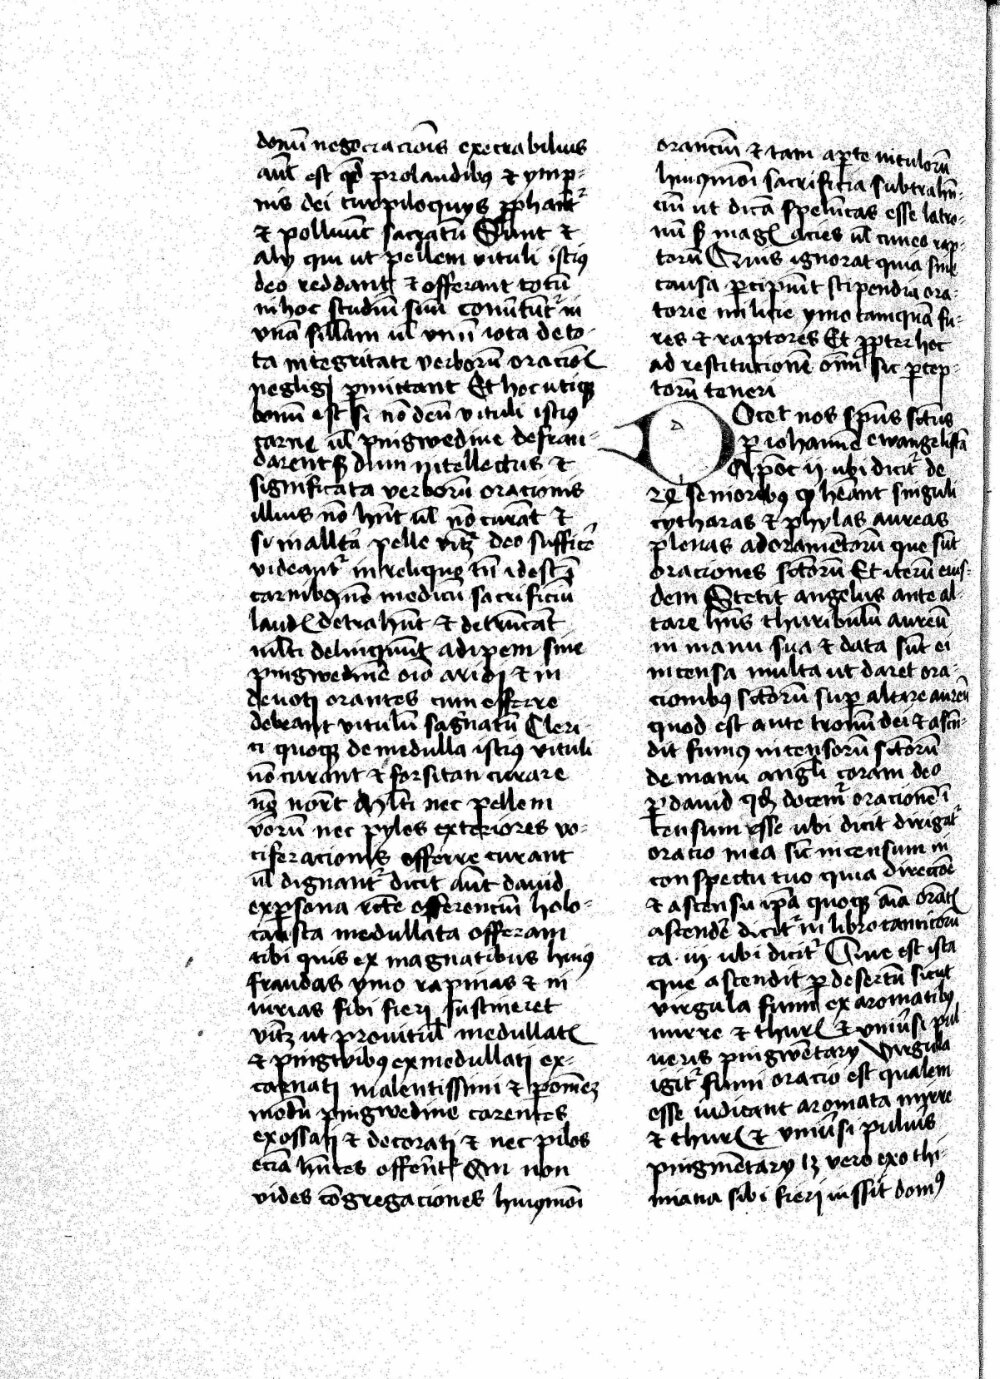 donū negociacōis execrabilius
aūt est qđ prolaudibꝰ & ymp-
nis dei turpiloquijs ꝓphāt᷑
& polluūt sacratū Sunt &
alij qui ut pellem vituli istiꝰ
deo reddant & offerant totū
in hoc studiū suū conūtūt᷑ ut
vnā sillam ul vnū iota de to-
ta integritate verborū oracioīs
negligi ꝑmittant Et hoc utiqꝫ
bonū est si nō deū vituli istiꝰ
carne ul pingwedine defrau-
darent sꝫ dum intellectus &
significata verborū oracionis
illius nō hn̄t ul nō curāt &
si in alltā pelle vitꝫ deo sufficē
videant᷑ in reliquo tn̄ id est ī
carnibꝰ nō medicū sacrificiū
laudꝭ detrahūt & detrūcāt
mlti delinquūt adipem sine
pingwedinē oīo aridi & in
deuoti orantes cum offerre
debeant vitulū saginatū Cleri-
ci quoqꝫ de medulla istius vituli
nō curant & forsitan curare
nō nor̄t Mlti nec pellem
vorū nec pylos exteriores vo-
ciferacionis offerre curant
ul dignant᷑ dicit aūt dauid
ex ꝑsona rc̄te offerenciū holo-
causta medullata offeram
tibi quis ex magnatibus huiꝰ
fraudas ymo rapinas & in
iurias sibi fieri sustineret
vitꝫ ut pro vitul medullatꝭ
& pingwibꝰ exmedullati ex-
carnati malentissimi & ꝑ oēmꝫ
modū pingwedine carentes
exossati & decorati & nec pilos
eciā hn̄tes offerūt An non
vides cōgregaciones huiꝰmōi
oranciū & tam aꝑte vitulorū
huiꝰmōi sacrificia subtrahē-
ciū ut dicā spelūcas esse latro-
nū sꝫ magꝭ acies ul cuneo rap-
torū Quis ignorat quia sine
causa ꝑcipiūt stipendia ora-
torie milicie ymo tamquā fu-
res & raptores Et ꝓpter hoc
ad restitucionē oīm sic ꝑcep-
torū teneri
Docet nos spūs sctūs
ꝑ iohannē ewangelistā
Apoc̄ v ubi dicit᷑ de
24 senioribus qꝫ hēant singuli
cytharas & phylas aureas
plenas adoramētorū que sūt
oraciones sctorū Et iterū eius-
dem Stetit angelus ante al-
tare hn̄s thuribulū aureū
in manu sua & data sūt ei
incensa multa ut daret ora-
cionibꝰ sctorū suꝑ altare aureū
quod est ante tronū dei & ascē-
dit fumus incensorū sctorū
de manu angli coram deo
ꝑ dauid qꝫ docem᷑ oracionē ī
censum esse ubi dicit dirigat᷑
oracio mea sic̄ incensum in
conspectu tuo quia direccōe
& ascensu ipā quoqꝫ aīa orātꝭ
ascendē dicit᷑ in libro canticorū
ca iij ubi dicit᷑ Que est ista
que ascendit ꝑ desertū sicut
virgula fumi ex aromatibꝰ
mirre & thurꝭ & vniūsi pul
ueris pingwētarij Virgula
igit᷑ fumi oracio est qualem
esse iudicant aromata mirre
& thurꝭ & vniūsi puluis
pingmētarij lꝫ vero exo thi-
miana sibi fieri iussit domꝰ